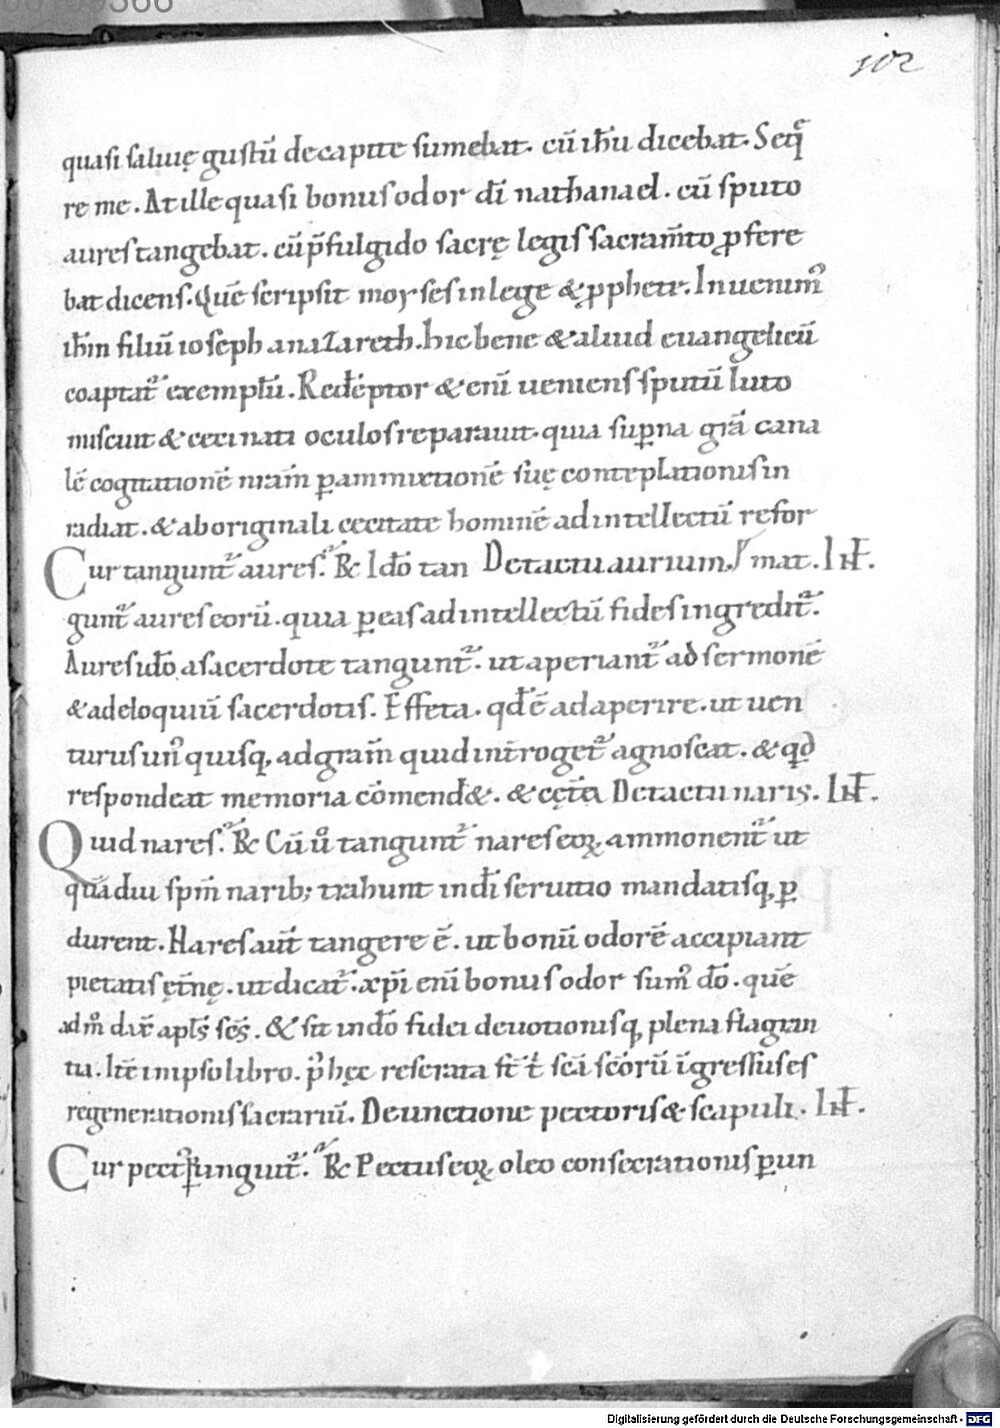 102
quasi saluię gustū de capite sumebat. cū ih̄u dicebat. Seq̄
re me. At ille quasi bonus odor dī nathanael. cū sputo
aures tangebat. cū p̄fulgido sacrę legis sacram̄to ꝓfere
bat dicens. Quē scripsit moyses in lege & ꝓphetę. Inuenim᾽
ih̄m filiū ioseph a nazareth. hic bene & aliud euangelicū
coaptat᷑ exemplū. Redēptor & eni̅ ueniens sputū luto
miscuit & ceci nati oculos reparauit. quia supna grā cana
lē cogitationē nr̄am ꝑ ammixtionē suę conteplationis in
radiat. & ab originali cecitate hominē ad intellectū refor
Cur tangunt᷑ aures. R̄ Idō tan De tactu aurium. mat. INT̄.
gunt᷑ aures eorū. quia ꝑ eas ad intellectū fides ingredit᷑.
Aures idō a sacerdote tangunt᷑. ut aperiant᷑ ad sermonē
& ad eloquiū sacerdotis. Effeta. qd̄ ē adaperire. ut uen
turus un᾽quisq; ad gram̄ quid int̄roget᷑ agnoscat. & qd̄
respondeat memoria cōmend&. & cęt̄a De tactu naris. INT̄.
Quid nares. R̄ Cū u̅ tangunt᷑ nares eoꝝ ammonent᷑ ut
quādiu spm̄ narib; trahunt in dī seruitio mandatisq; ꝑ
durent. Nares aut̄ tangere ē. ut bonū odorē accipiant
pietatis ęt̄nę. ut dicat᷑. xp̄i eni̅ bonus odor sum᾽ dō. quē
admō dix̄ apl̄s sc̄s. & sit in dō fidei deuotionisq; plena flagran
tia. Itē in ipso libro. p᾽ hęc reserata st̄ t̄ sc̄ā sc̄ōrū īgressus es
regenerationis sacrariū. De unctione pectoris & scapuli. INT̄.
Cur pect᾽ ꝑunguit᷑. R̄ Pectus eoꝝ oleo consecrationis ꝑun
Digitalisierung gefördert durch die Deutsche Forschungsgemeinschaft - DFG